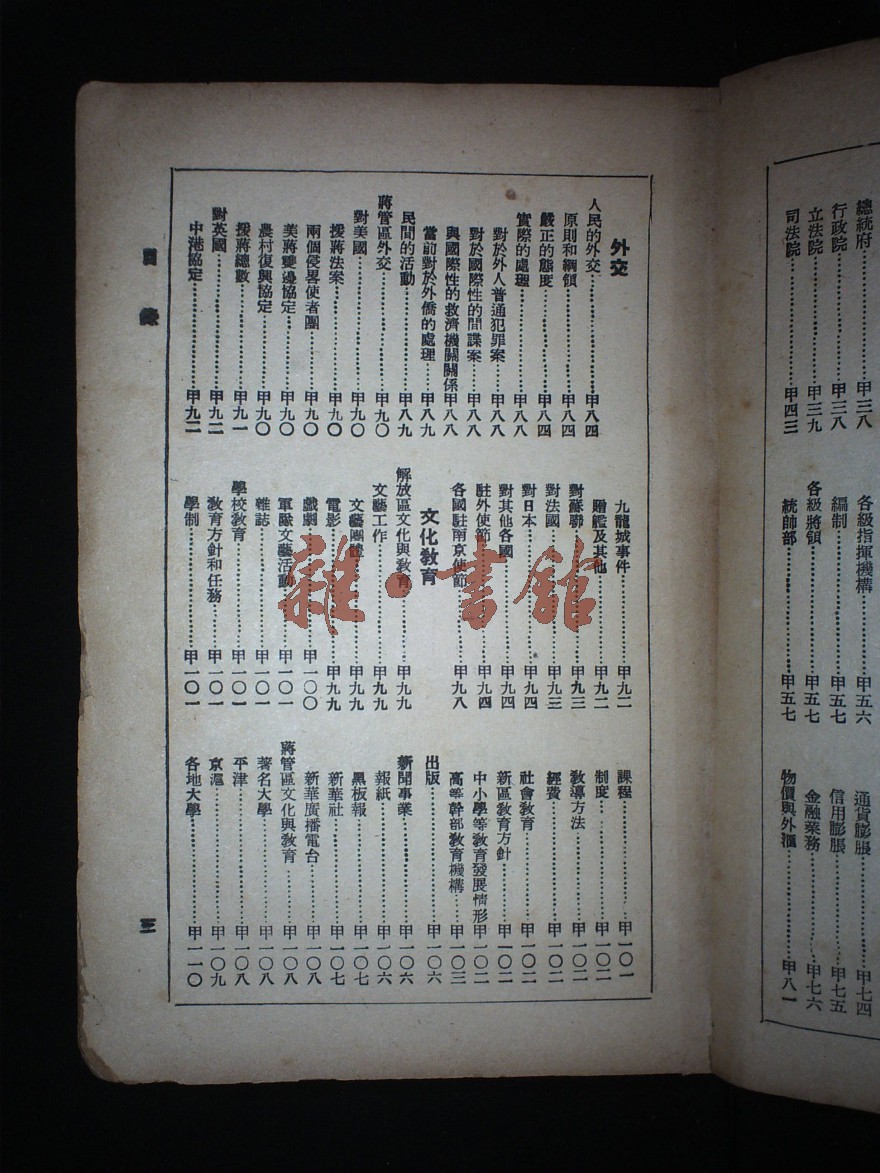 總統府……甲三八
行政院……甲三八
立法院……甲三九
司法院……甲四三
各級指揮機構……甲五六
編制……甲五七
各級將領……甲五七
統帥部……甲五七
通貨膨脹……甲七四
信用膨脹……甲七五
金融業務……甲七六
物價與外滙……甲八一
外交
人民的外交……甲八四
原則和綱領……甲八四
嚴正的態度……甲八四
實際的處理……甲八八
對於外人普通犯罪案……甲八八
對於國際性的間諜案……甲八八
與國際性的救濟機關關係……甲八八
當前對於外僑的處理……甲八九
民間的活動……甲八九
蔣管區外交……甲九〇
對美國……甲九〇
援蔣法案……甲九〇
兩個侵畧使者團……甲九〇
美蔣雙邊協定……甲九〇
農村復興協定……甲九〇
援蔣總數……甲九一
對英國……甲九二
中港協定……甲九二
九龍城事件……甲九二
贈艦及其他……甲九二
對蘇聯……甲九三
對法國……甲九三
對日本……甲九四
對其他各國……甲九四
駐外使節……甲九四
各國駐南京使節……甲九八
文化教育
解放區文化與教育……甲九九
文藝工作……甲九九
文藝團體……甲九九
電影……甲九九
戲劇……甲一〇〇
軍隊文藝活動……甲一〇一
雜誌……甲一〇一
學校教育……甲一〇一
教育方針和任務……甲一〇一
學制……甲一〇一
課程……甲一〇一
制度……甲一〇二
教導方法……甲一〇二
經費……甲一〇二
社會教育……甲一〇二
新區教育方針……甲一〇二
中小學等教育發展情形……甲一〇二
高等幹部教育機構……甲一〇三
出版……甲一〇六
新聞事業……甲一〇六
報紙……甲一〇六
黑板報……甲一〇七
新華社……甲一〇七
新華廣播電台……甲一〇八
蔣管區文化與教育……甲一〇八
著名大學……甲一〇八
平津……甲一〇八
京滬……甲一〇九
各地大學……甲一一〇
目錄
三
雜·書館